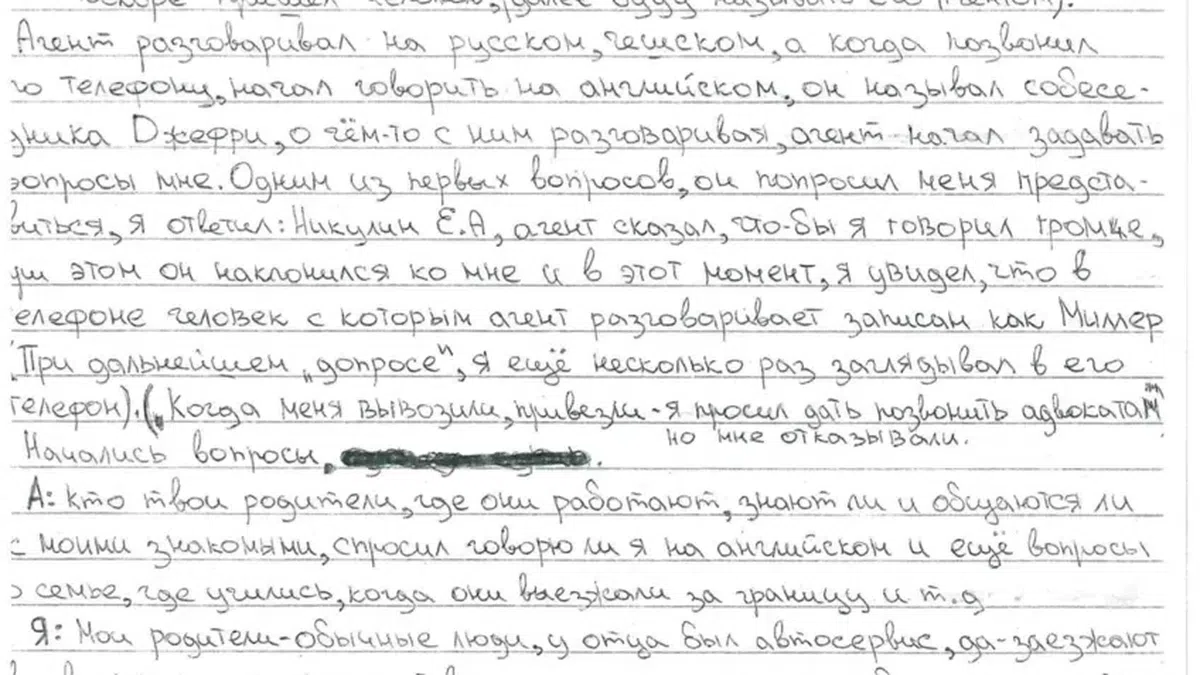 Агент разговаривал на русском, чешском, а когда позвонил
по телефону, начал говорить на английском, он называл собесе-
дника Джефри, о чём-то с ним разговаривая, агент начал задавать
вопросы мне. Одним из первых вопросов, он попросил меня предста-
виться, я ответил: Никулин Е.А, агент сказал, что-бы я говорил громце,
при этом он наклонился ко мне и в этот момент, я увидел, что в
телефоне человек с которым агент разговаривает записан как Миллер
(При дальнейшем „допросе", я ещё несколько раз заглядывал в его
телефон). (Когда меня вывозили, привезли - я просил дать позвонить адвокатам
но мне отказывали.
Начались вопросы,
А: кто твои родители, где они работают, знают ли и общаются ли
с моими знакомыми, спросил говорю ли я на английском и ещё вопросы
о семье, где учились, когда они выезжали за границу и т.д
Я: Мои родители - обычные люди, у отца был автосервис, да - заезжают